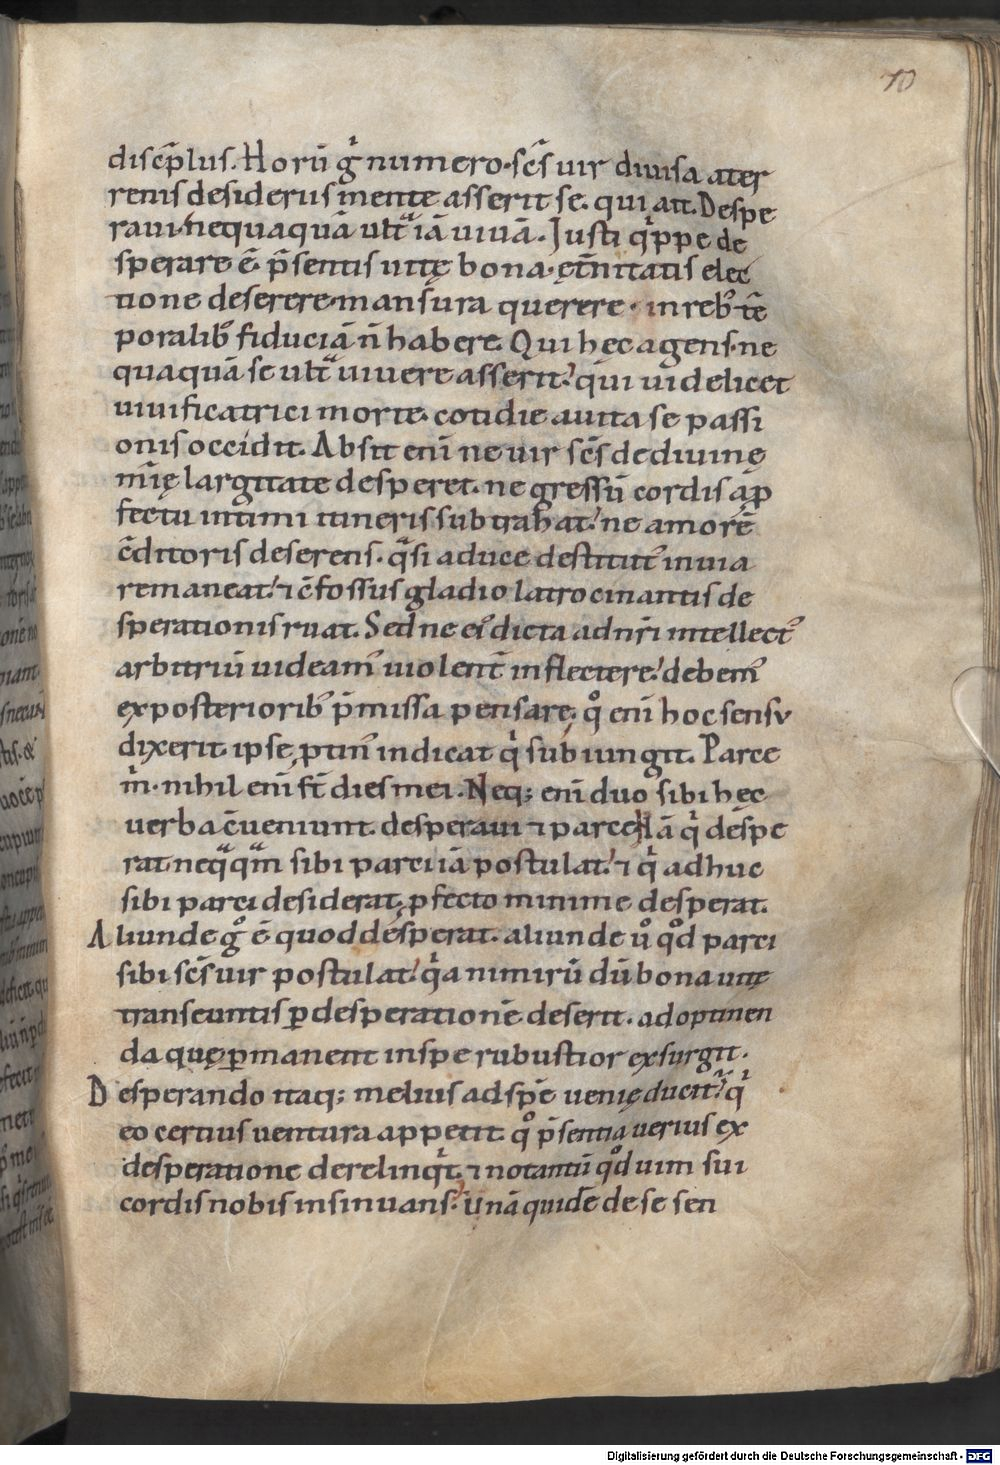 10
discip̄lus. Horū gͥ numero· scs̄ uir diuisa a ter
renis desideriis mente asserit se. qui ait. Despe
raui. nequaquā ult̄ᵃ iā uiuā. Iusti qͥppe de
sperare ē. p̄sentis uitę bona. ęt̄nitatis elec
tione deserere. mansura querere. in reb᾿ tē
poralib᾿ fiduciā n̄ habere. Qui hęc agens. ne
quaquā se ult̄ᵃ uiuere asserit. qui uidelicet
uiuificatrici morte. cotidie a uita se passi
onis occidit. Absit eni᷄ ne uir scs̄ de diuinę
mīę largitate desperet. ne gressū cordis a p
fectu intimi itineris subtrahat. ne amorē
c̄ditoris deserens. qᵃsi a duce destitut᾿ in uia
remaneat. ⁊ c̄fossus gladio latrocinantis de
sperationis ruat. Sed ne ei᾿ dicta ad nr̄i intellect᾿
arbitriū uideam᾿ uiolent̄ inflectere. debem᾿
ex posteriorib᾿ p̄missa pensare. qͦ eni᷄ hoc sensu
dixerit. ipse ꝓtin᾿ indicat qͥ subiungit. Parce
m̄ⁱ. nihil eni᷄ st̄ dies mei. Neq; eni᷄ duo sibi hęc
uerba c̄ueniunt. desperaui ⁊ parce. Nā qͥ despe
rat neqᵃqᵃm sibi parci iā postulat. ⁊ qͥ adhuc
sibi parci desiderat. ꝓfecto minime desperat.
Aliunde gͦ ē quod desperat. aliunde uͦ qͦd parci
sibi scs̄ uir postulat. qͥa nimirū dū bona uitę
transeuntis ꝑ desperationē deserit. ad optinen
da quę ꝑmanent in spe rubustior exsurgit.
Desperando itaq; melius ad spē uenię ducit᾿. qͥ
eo certius uentura appetit. qͦ p̄sentia uerius ex
desperatione derelinqͥt. ⁊ notantū qͦd uim sui
cordis nobis insinuans. Unā quidē de se sen
Digitalisierung gefördert durch die Deutsche Forschungsgemeinschaft - DFG